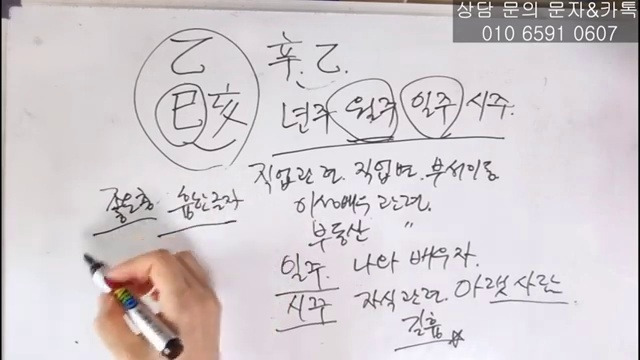 상담 문의 문자&카톡
010 6591 0607
乙 辛.乙.
巳亥 년주 월주 일주 시주.
직업관련. 직업변. 부서이동
이성배우 관련.
좋은충 흉한글자
부동산 〃
일주. 나와 배우자.
시주 자식관련. 아랫사람.
길흉